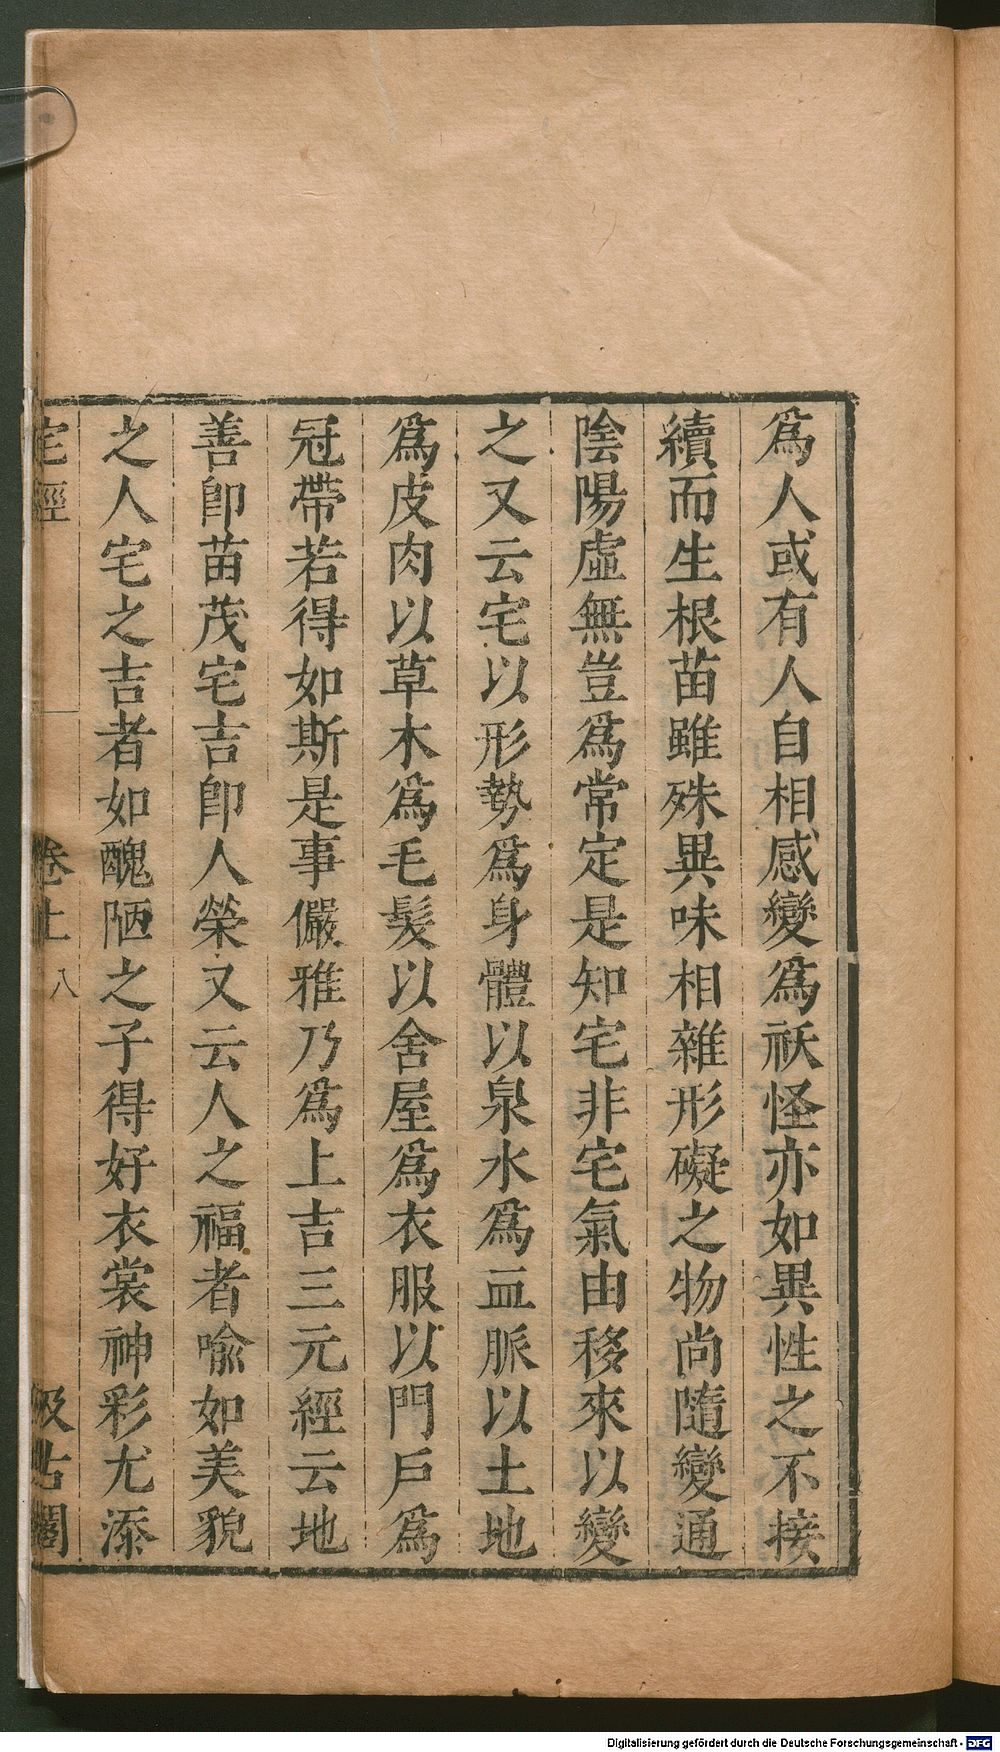 爲人或有人自相感變爲祅怪亦如異性之不接
續而生根苗雖殊異味相雜形礙之物尚隨變通
陰陽虛無豈爲常定是知宅非宅氣由移來以變
之又云宅以形勢爲身體以泉水爲血脈以土地
爲皮肉以草木爲毛髮以舍屋爲衣服以門戶爲
冠帶若得如斯是事儼雅乃爲上吉三元經云地
善卽苗茂宅吉卽人榮又云人之福者喻如美貌
之人宅之吉者如醜陋之子得好衣裳神彩尤添
宅經 卷上 八 汲古閣
Digitalisierung gefördert durch die Deutsche Forschungsgemeinschaft - DFG